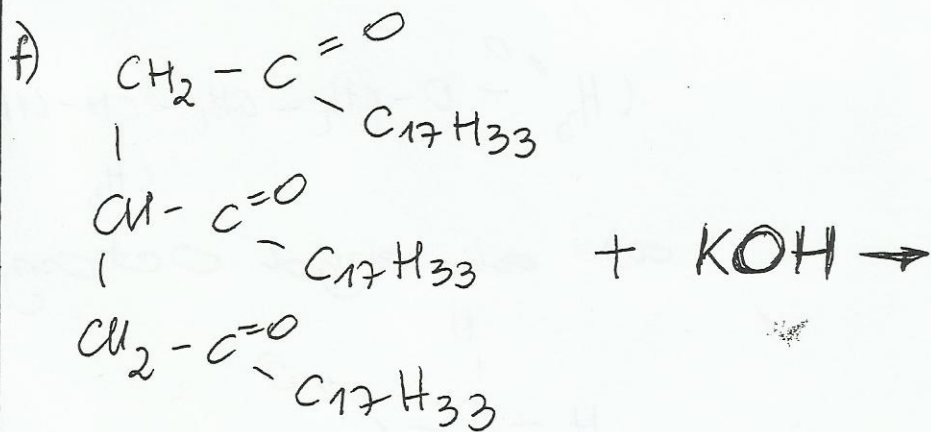 f)
CH2 - C = O
\ C17H33
|
CH - C = O
\ C17H33 + KOH →
|
CH2 - C = O
\ C17H33